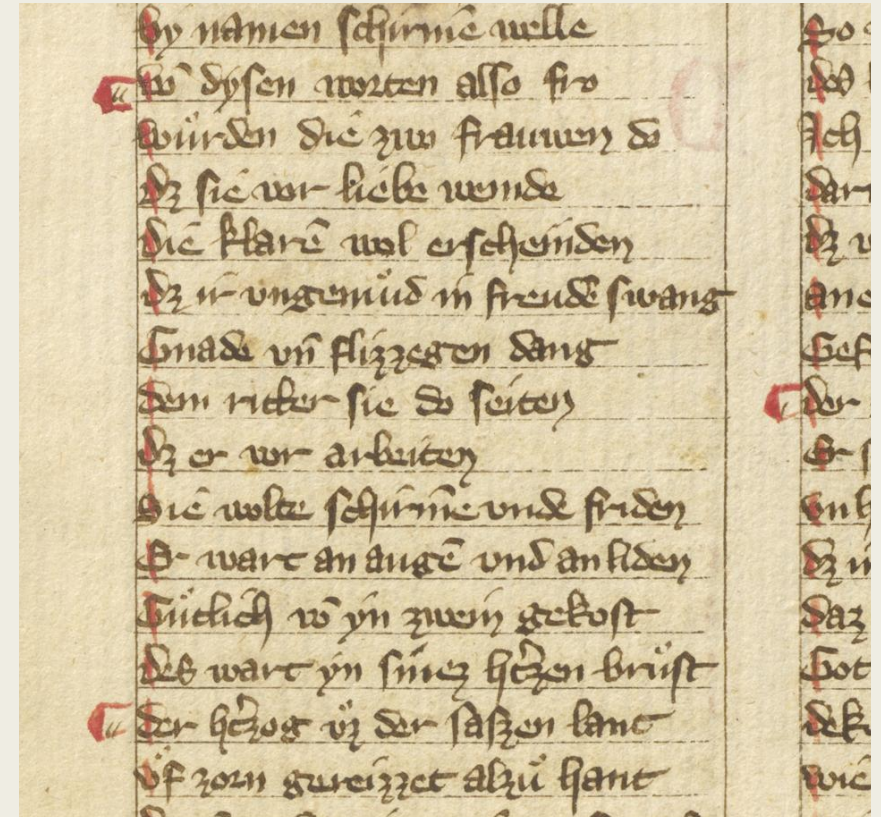 by namen schirmē welle
vō dysen worten also fro
wuͦrden die zwo frauwen do
dz sie vor liebe weinde
die klarē wol erscheinden
dz ir vngemuͦd in freudē swang
Gnade vn̄ flizzegen dang
dem ritter sie do seiten
dz er vor arbeiten
Sie wolte schirmē vnde friden
Er wart an augē vnd an liden
Guͤtlich vō yn zwein gekost
des wart yn sinez h̓tzen bruͦst
der h̓tzog vͦz der saszen lant
vͦf zorn gereizzet alzuͦ hant
So
des
Ich
dar
dz
ane
Gef
der
Er s
vn
dz
daz
Got
dek
wie